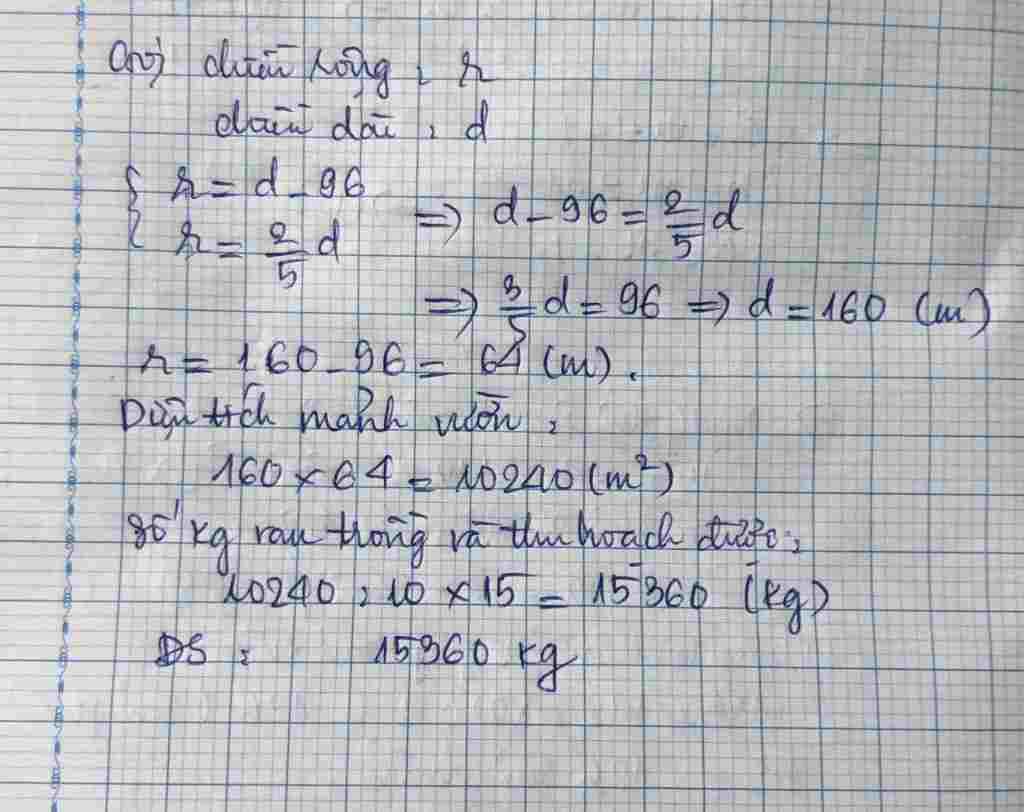 Gọi chiều rộng : r
chiều dài : d
{ r = d - 96
r = 2/5 d
=> d - 96 = 2/5 d
=> 3/5 d = 96 => d = 160 (m)
r = 160 - 96 = 64 (m).
Diện tích mảnh vườn :
160 x 64 = 10240 (m²)
Số kg rau trồng và thu hoạch được :
10240 : 10 x 15 = 15360 (kg)
ĐS : 15360 kg